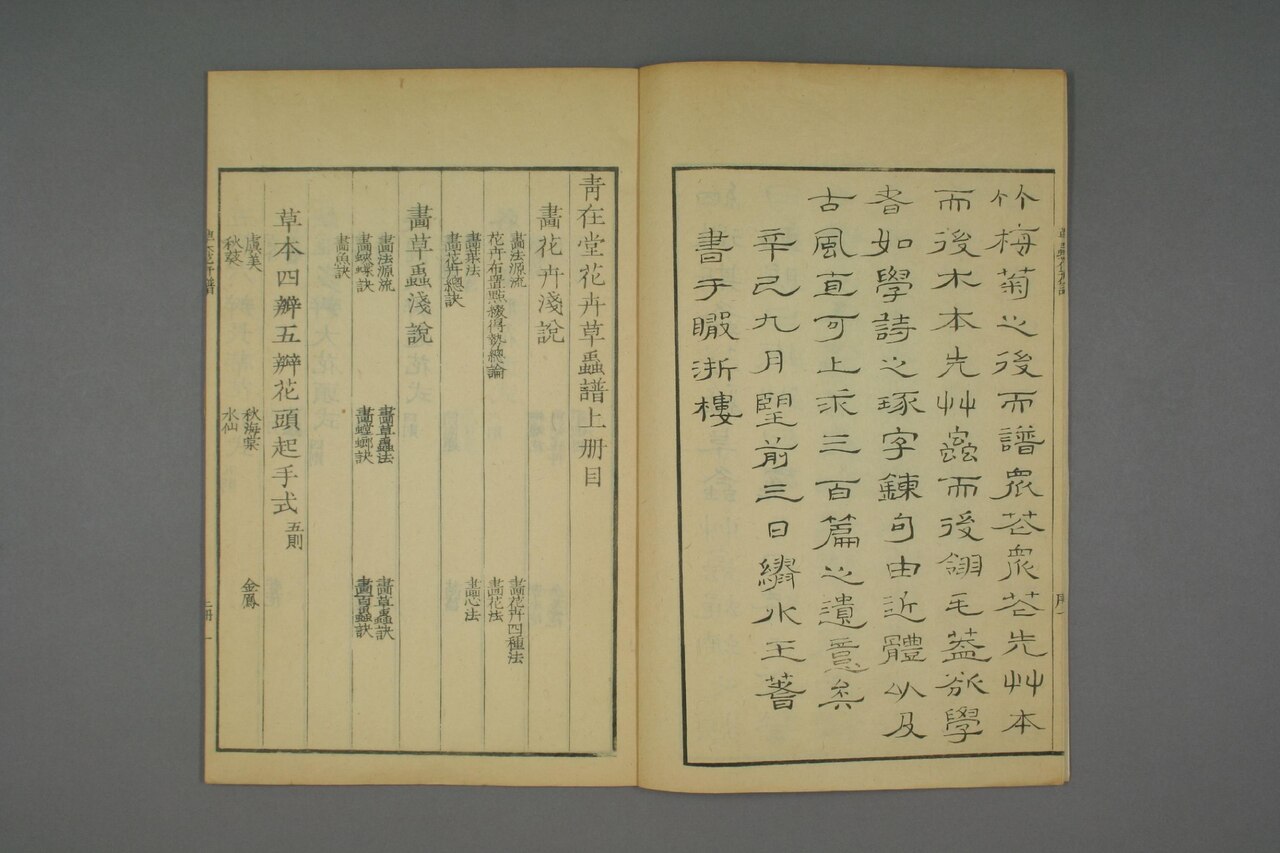 竹梅菊之後而譜眾花眾花先艸本
而後木本先艸蟲而後翎毛蓋欲學
者如學詩之琢字鍊句由近體以及
古風直可上求三百篇之遺意矣
辛巳九月朢前三日繡水王蓍
書于瞰浙樓
青在堂花卉草蟲譜上册目
畫花卉淺說
畫法源流 畫花卉四種法
花卉布置點綴得勢總論 畫花法
畫葉法 畫心法
畫花卉總訣
畫草蟲淺說
畫法源流 畫草蟲法 畫草蟲訣
畫蛺蝶訣 畫螳螂訣 畫百蟲訣
畫魚訣
草本四瓣五瓣花頭起手式 五則
虞美 秋海棠 金鳳
秋葵 水仙